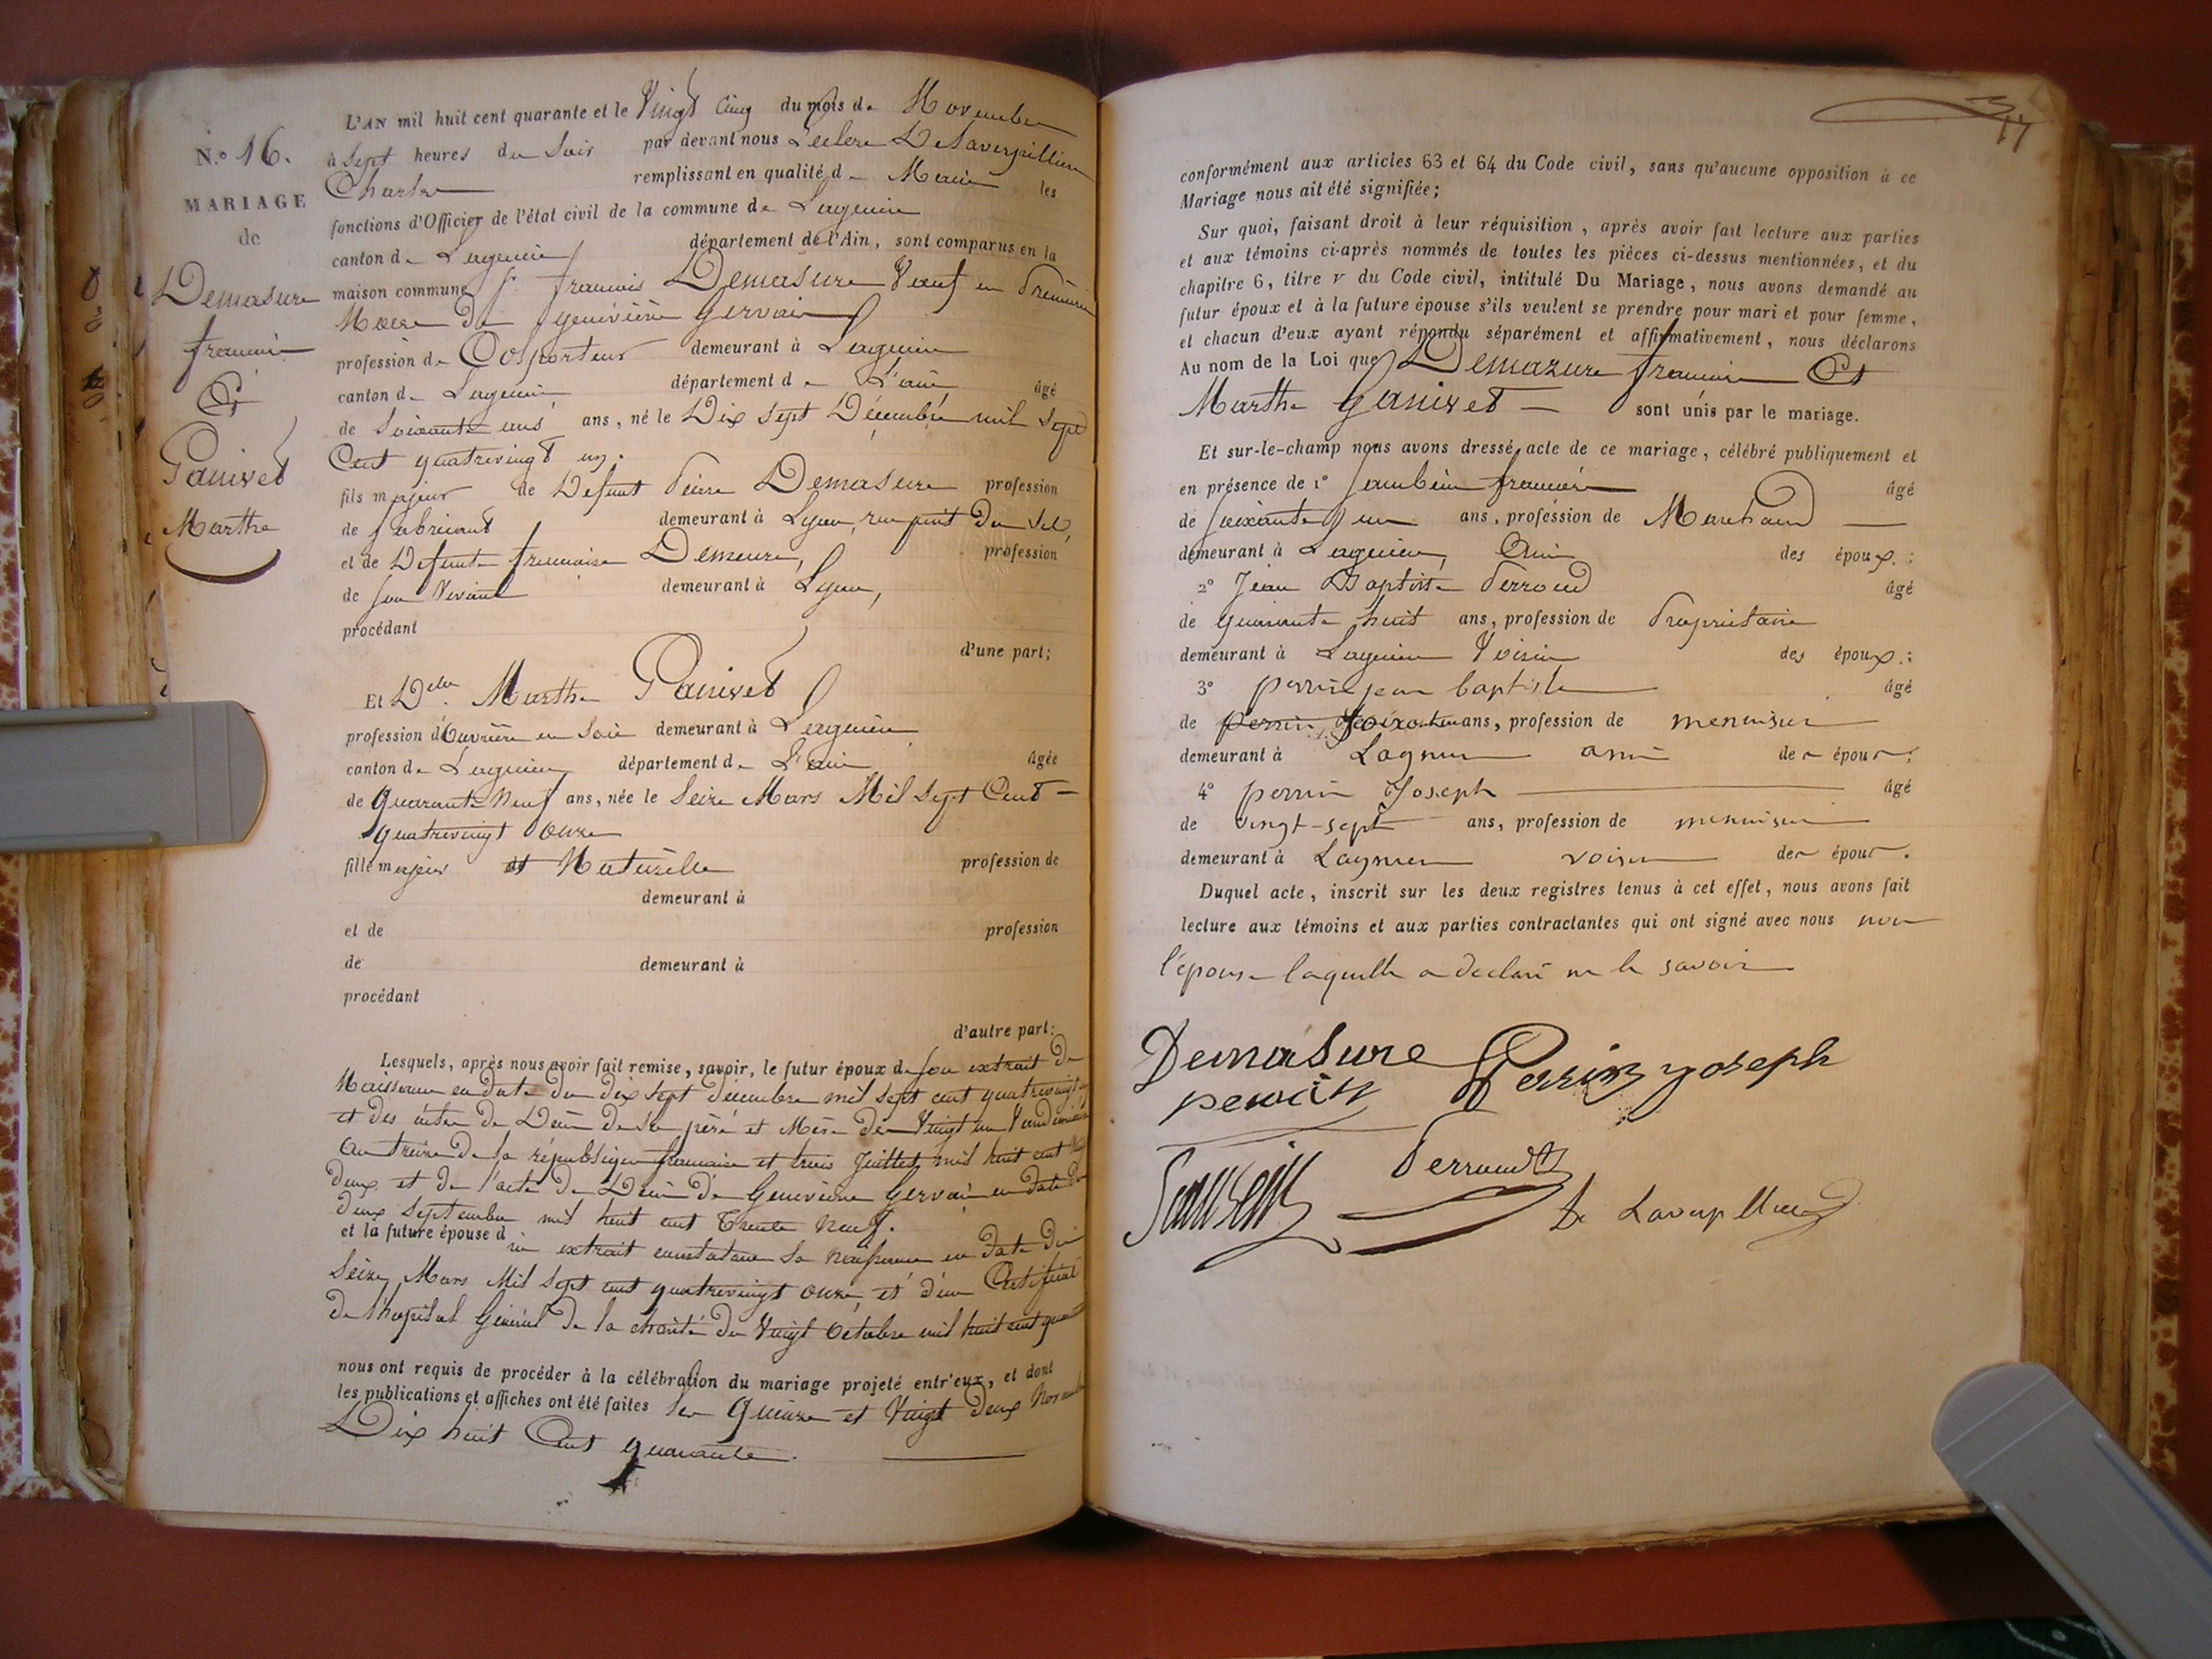 N.° 16.
MARIAGE
de
Demasure
francois
Et
Ganivet
Marthe
L'AN mil huit cent quarante et le Vingt Cinq du mois de Novembre
à Sept heures du Soir par devant nous Leclerc Delaverpillière
Charles remplissant en qualité de Maire les
fonctions d'Officier de l'état civil de la commune de Lagnieu
canton de Lagnieu département de l'Ain, sont comparus en la
maison commune Sr. francois Demasure Veuf en Première
Noces de Genevière Gervais
profession de Colporteur demeurant à Lagnieu
canton de Lagnieu département de L'ain âgé
de Soixante ans ans, né le Dix Sept Décembre mil Sept
Cent quatrevingt un.
fils majeur de Defunt Pierre Demasure profession
de fabricant demeurant à Lyon, rue puit Du Sel,
et de Defunte francoise Demeure, profession
de Son Vivant demeurant à Lyon,
procédant
d'une part;
Et Delle Marthe Ganivet
profession d'Ouvrière en Soie demeurant à Lagnieu
canton de Lagnieu département de L'ain âgée
de Quarante Neuf ans, née le Seize Mars Mil Sept Cent
quatrevingt Onze
fille majeur et Naturelle profession de
demeurant à
et de profession
de demeurant à
procédant
d'autre part:
Lesquels, après nous avoir fait remise, savoir, le futur époux de Son extrait de
Naissance en date du dix Sept décembre mil Sept cent quatrevingt
et des actes de Décès de Ses père et Mère des Vingt un Vendémiaire
an treize De la république francaise et trois Juillet mil huit cent
deux et de l'acte de Décès de Genevière Gervais en date du
deux Septembre mil huit cent Trente Neuf.
et la future épouse d'un extrait constatant Sa naissance en date du
Seize Mars Mil Sept cent quatrevingt onze, et d'un Certificat
de l'hopital Général de la charité du Vingt Octobre mil huit cent quarante
nous ont requis de procéder à la célébration du mariage projeté entr'eux, et dont
les publications et affiches ont été faites les Quinze et Vingt Deux Novembre
Dix huit Cent quarante.
17
conformément aux articles 63 et 64 du Code civil, sans qu'aucune opposition à ce
Mariage nous ait été signifiée;
Sur quoi, faisant droit à leur réquisition, après avoir fait lecture aux parties
et aux témoins ci-après nommés de toutes les pièces ci-dessus mentionnées, et du
chapitre 6, titre v du Code civil, intitulé Du Mariage, nous avons demandé au
futur époux et à la future épouse s'ils veulent se prendre pour mari et pour femme,
et chacun d'eux ayant répondu séparément et affirmativement, nous déclarons
Au nom de la Loi que Demazure francois Et
Marthe Ganivet sont unis par le mariage.
Et sur-le-champ nous avons dressé acte de ce mariage, célébré publiquement et
en présence de 1° francois âgé
de Soixante un ans, profession de Marchand
demeurant à Lagnieu, Ami des époux.;
2° Jean Baptiste Perroud âgé
de quarante huit ans, profession de Propriétaire
demeurant à Lagnieu Voisin des époux.;
3° perrin jean baptiste âgé
de perrin, Soixante ans, profession de menuisier
demeurant à Lagnieu ami des époux;
4° perrin Joseph âgé
de vingt-sept ans, profession de menuisier
demeurant à Lagnieu voisin des époux.
Duquel acte, inscrit sur les deux registres tenus à cet effet, nous avons fait
lecture aux témoins et aux parties contractantes qui ont signé avec nous non
l'épouse laquelle a déclaré ne le savoir
Demasure Perrin joseph
perrin
Perroud